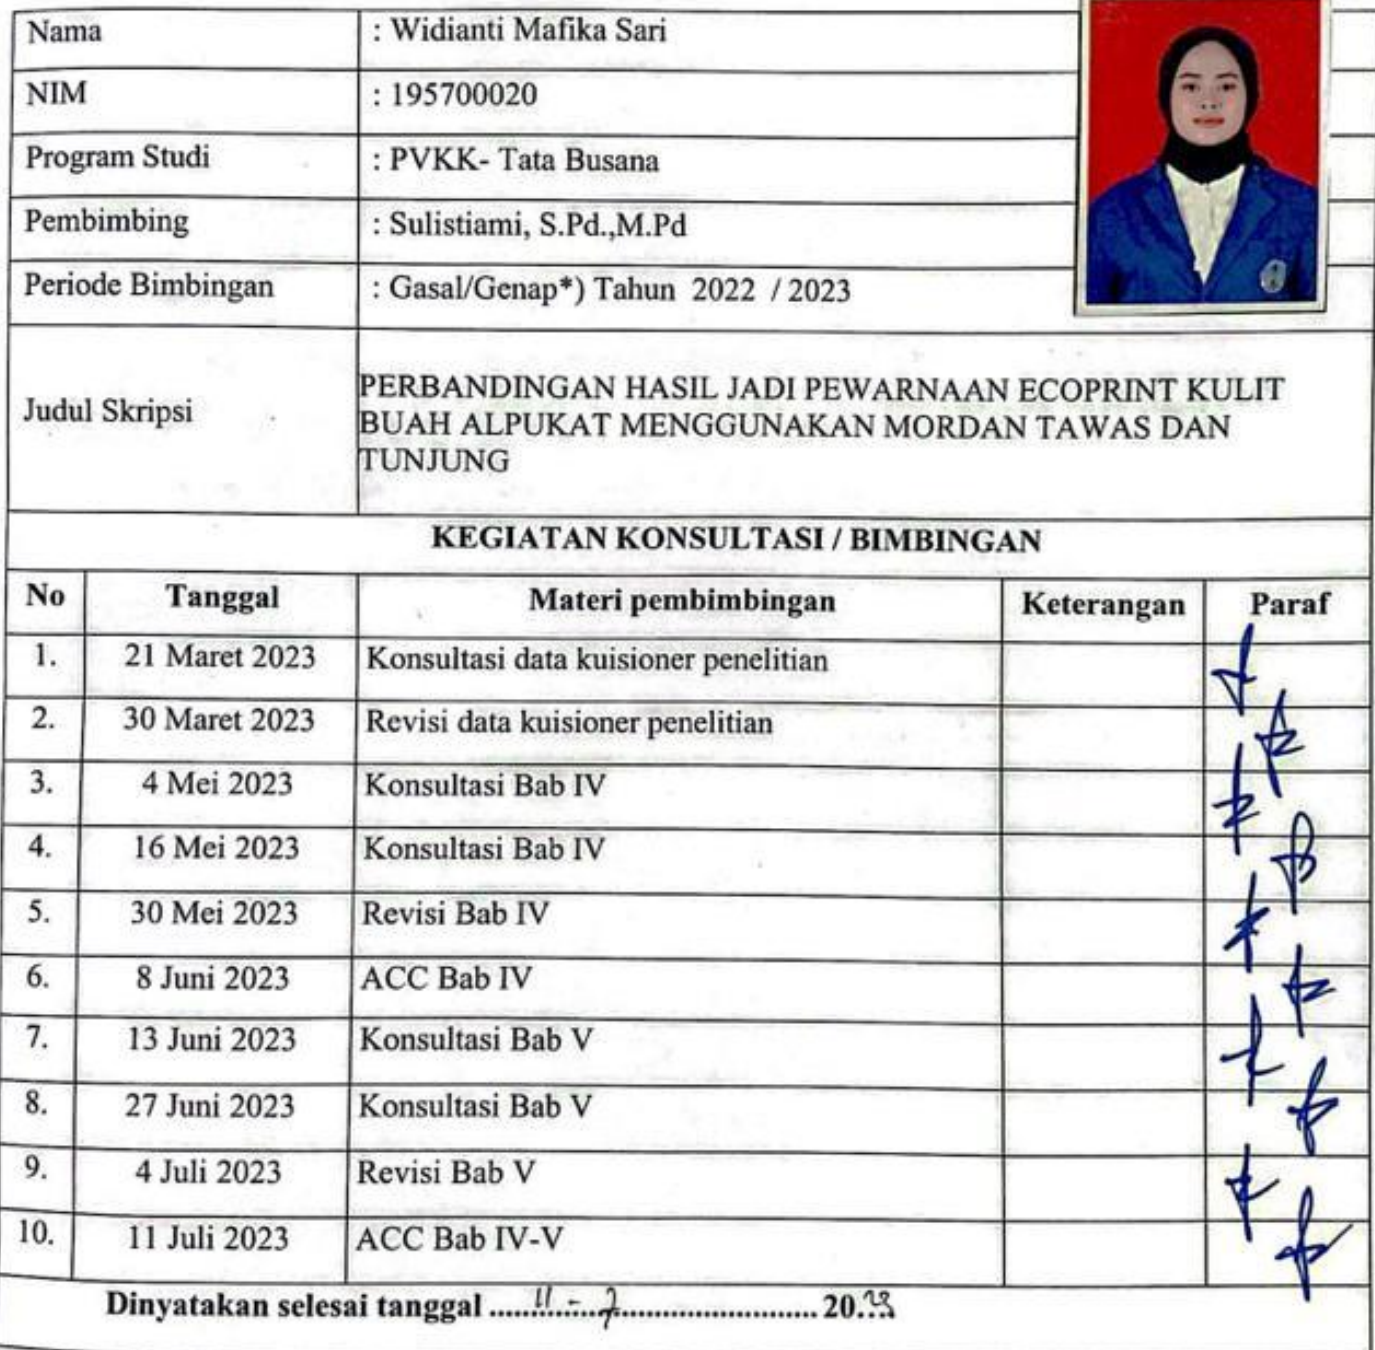 Nama : Widianti Mafika Sari
NIM : 195700020
Program Studi : PVKK- Tata Busana
Pembimbing : Sulistiami, S.Pd.,M.Pd
Periode Bimbingan : Gasal/Genap*) Tahun 2022 / 2023
Judul Skripsi
PERBANDINGAN HASIL JADI PEWARNAAN ECOPRINT KULIT
BUAH ALPUKAT MENGGUNAKAN MORDAN TAWAS DAN
TUNJUNG
KEGIATAN KONSULTASI / BIMBINGAN
No Tanggal Materi pembimbingan Keterangan Paraf
1. 21 Maret 2023 Konsultasi data kuisioner penelitian
2. 30 Maret 2023 Revisi data kuisioner penelitian
3. 4 Mei 2023 Konsultasi Bab IV
4. 16 Mei 2023 Konsultasi Bab IV
5. 30 Mei 2023 Revisi Bab IV
6. 8 Juni 2023 ACC Bab IV
7. 13 Juni 2023 Konsultasi Bab V
8. 27 Juni 2023 Konsultasi Bab V
9. 4 Juli 2023 Revisi Bab V
10. 11 Juli 2023 ACC Bab IV-V
Dinyatakan selesai tanggal ......11 - 7........................... 20.23